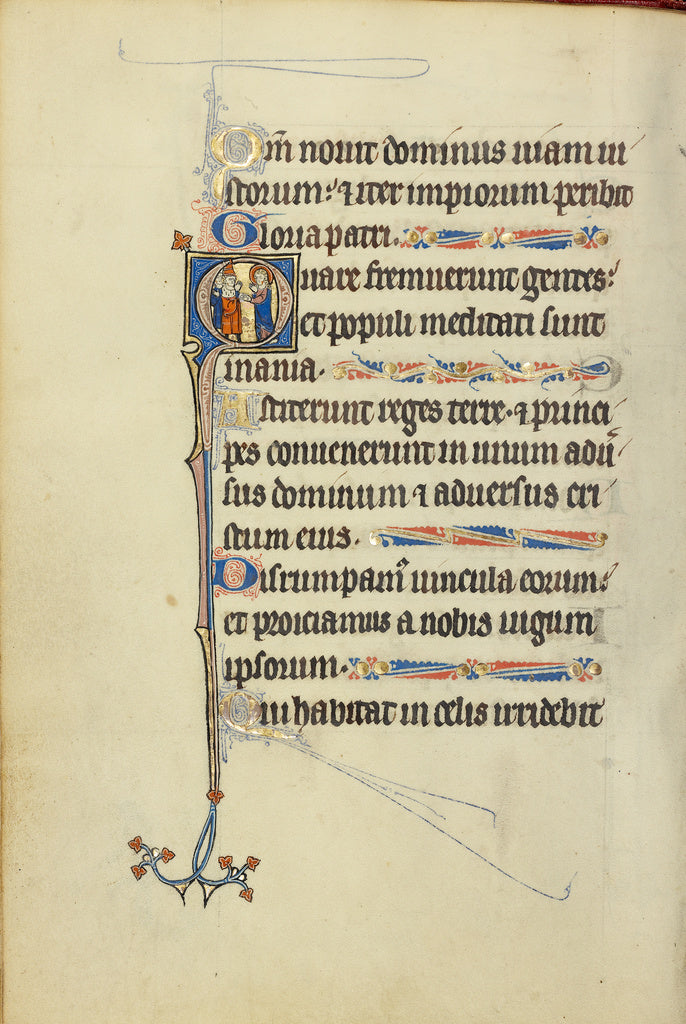 Qm̄ nouit dominus uiam iu
storum: ⁊ iter impiorum peribit
Gloria patri.
Quare fremuerunt gentes:
et populi meditati sunt
inania.
Astiterunt reges terre. ⁊ princi
pes conuenerunt in unum aduͥ
sus dominum ⁊ aduersus cri
stum eius.
Disrumpamꝰ uincula eorum:
et proiciamus a nobis iugum
ipsorum.
Qui habitat in celis irridebit